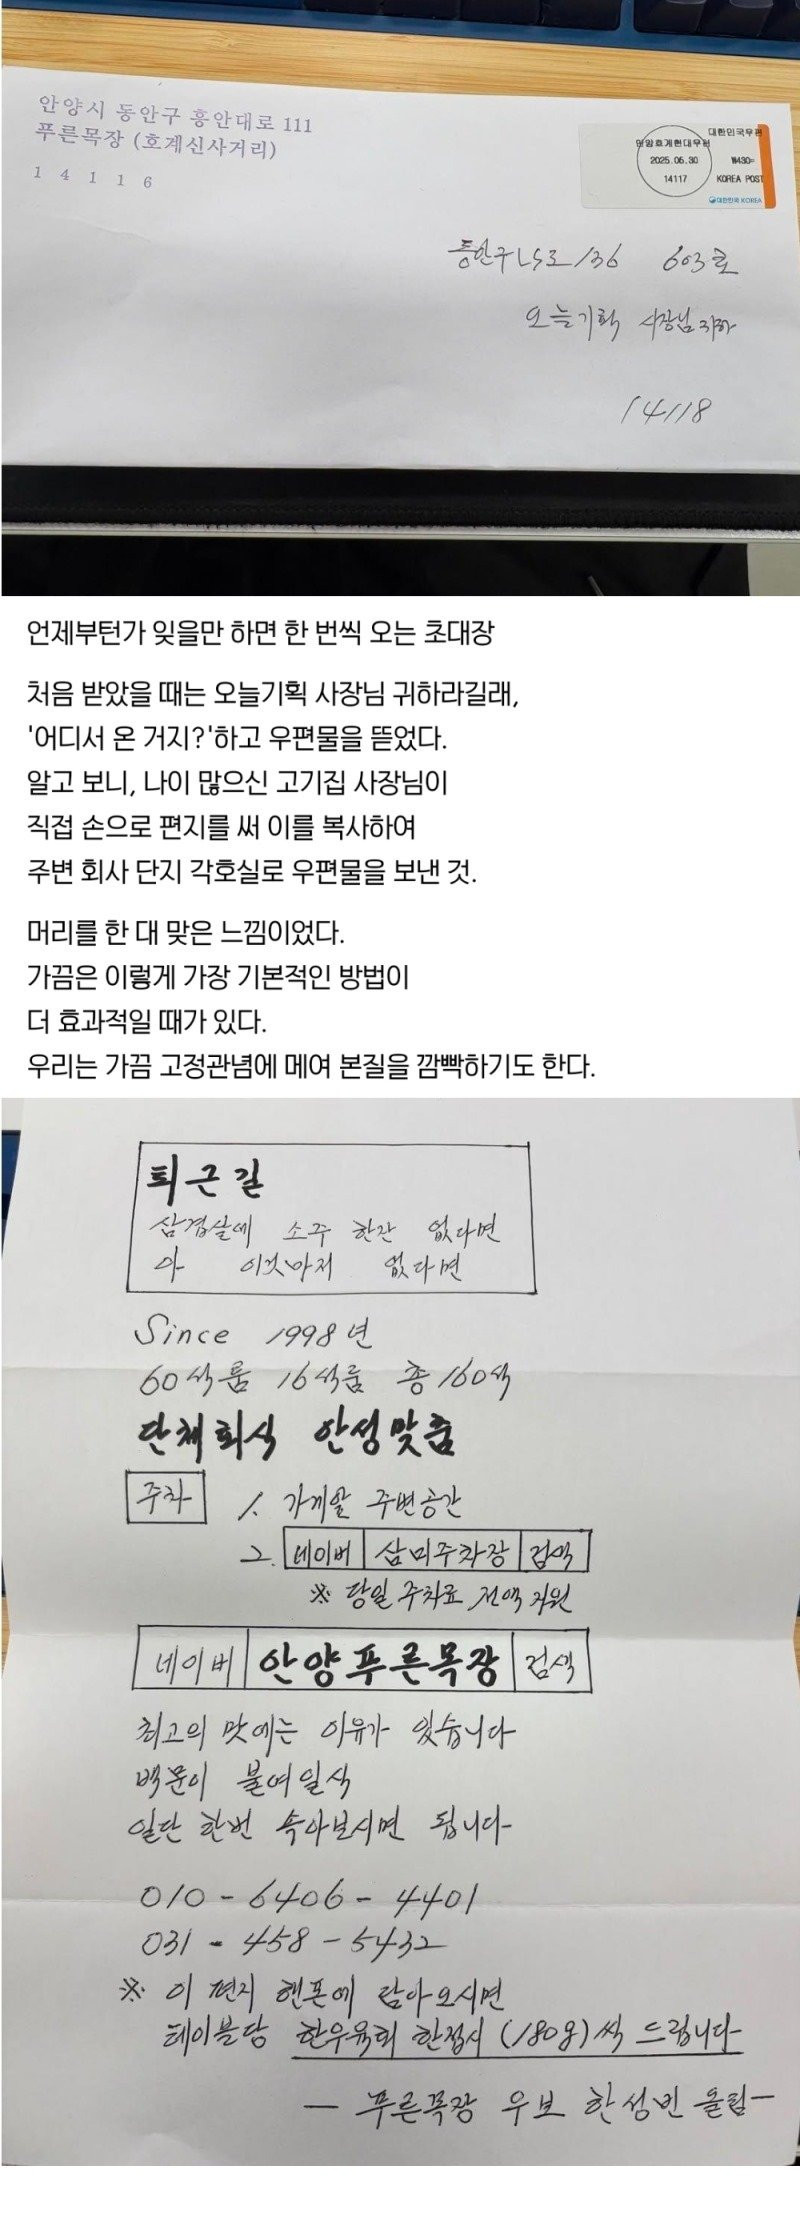 안양시 동안구 흥안대로 111
푸른목장 (호계신사거리)
1 4 1 1 6
대한민국우편
안양호계현대우체
2025.06.30
14117
₩430=
KOREA POST
대한민국 KOREA
동안구 LS로 136 603호
오늘기획 사장님 귀하
14118
언제부턴가 잊을만 하면 한 번씩 오는 초대장
처음 받았을 때는 오늘기획 사장님 귀하라길래,
'어디서 온 거지?'하고 우편물을 뜯었다.
알고 보니, 나이 많으신 고기집 사장님이
직접 손으로 편지를 써 이를 복사하여
주변 회사 단지 각호실로 우편물을 보낸 것.
머리를 한 대 맞은 느낌이었다.
가끔은 이렇게 가장 기본적인 방법이
더 효과적일 때가 있다.
우리는 가끔 고정관념에 메여 본질을 깜빡하기도 한다.
퇴근길
삼겹살에 소주 한잔 없다면
아 이것마저 없다면
Since 1998년
60석룸 16석룸 총160석
단체회식 안성맞춤
주차 1. 가게앞 주변공간
2. 네이버 삼미주차장 검색
※ 당일 주차료 전액 지원
네이버 안양푸른목장 검색
최고의 맛에는 이유가 있습니다
백문이 불여일식
일단 한번 속아보시면 됩니다
010-6406-4401
031-458-5432
※ 이 편지 핸폰에 담아오시면
테이블당 한우육회 한접시(180g)씩 드립니다
- 푸른목장 우보 한성빈 올림 -